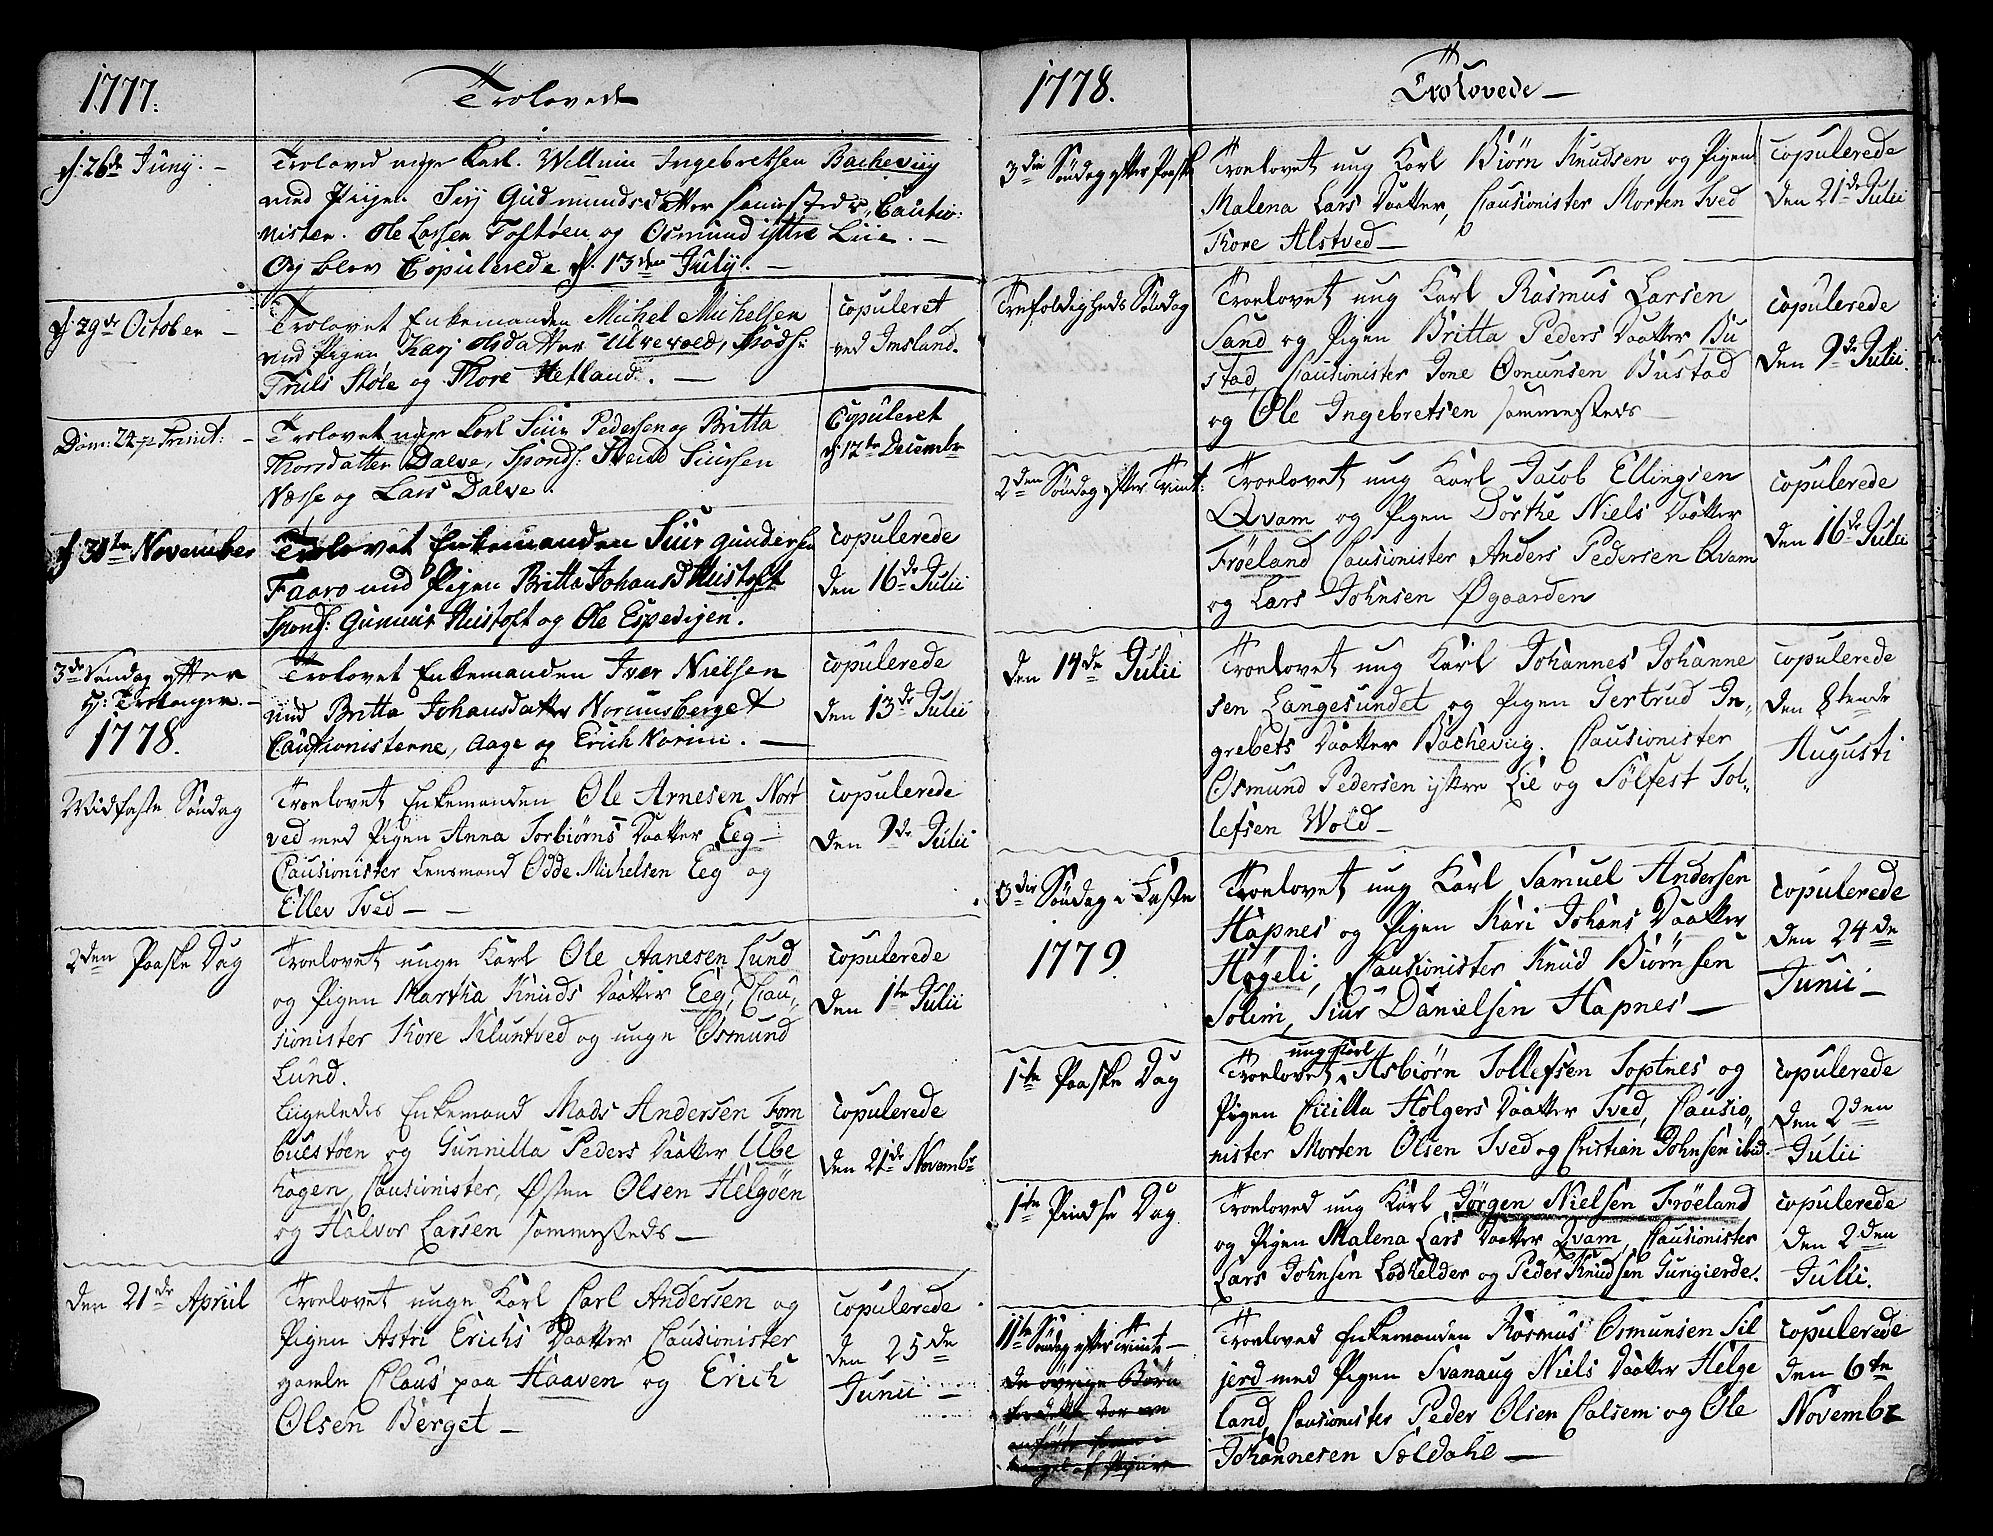 1777.
Trolovede
d. 26de Junij. -
Troloved unge Karl. Willum Ingebretsen Bacheviig
med Piige. Sirj Gudmundsdatter samesteds, Cautio:
nister. Ole Larsen Toftøen og Osmund ittre Liie. -
Og blev Copulerede d. 13den Julij. -
d. 29de October -
Trolovet Enkemanden Michel Michelsen
med Pigen Karj Olsdatter Ulvevold, Spods:
Truls Støle og Thore Hetland. -
copuleret
ved Imsland.
Dom: 22 p: Trinit: -
Trolovet unge Karl Siur Pedersen og Britta
Thorsdatter Dalve, Sponds: Svend Siursen
Næsse og Lars Dalve.
Copuleret
d. 12te Decembr
d. 30te November
Trolovet Enkemanden Siur Gundersen
Faaro med Pigen Britta Johansd Mustoft
Sponds: Gunnar Mustoft og Ole Espedigen.
copulerede
den 16de Julii
3de Søndag efter
H: Trekonger. -
1778.
Trolovet Enkemanden Iver Nielsen
med Britta Johansdatter Norumsberget
Cautionisterne, Aage og Erich Norum. -
copulerede
den 13de Julii
Midfaste Søndag
Troelovet Enkemanden Ole Arnesen Nort
ved med Pigen Anna Torbiørns Daatter Eeg -
Causionister Lensmand Odde Michelsen Eeg og
Ellev Tved -
copulerede
den 9de Julii
2den Paaske Dag
Troelovet unge Karl Ole Aanesen Lund
og Pigen Martha Knuds Daatter Eeg, Cau,
sionister Tore Kluntved og unge Osmund
Lund.
copulerede
den 1te Julii
Liigeledes Enkemand Mads Andersen Tom
buestøen og Gunnilla Peders Daatter Ube
hagen, Causionister, Østen Olsen Helgøen
og Halvor Larsen sammesteds -
copulerede
den 21de Novembr
den 21de Apriil
Troelovet unge Karl Carl Andersen og
Pigen Astri Erichs Daatter Causionister
gamle Claus paa Haaven og Erich
Olsen Berget -
copulerede
den 25de
Junii -
1778.
Trolovede -
3die Søndag efter Paaske
Troelovet ung Karl Biørn Knudsen og Pigen
Malena Lars Daatter, Causionister Morten Tved
Tore Alstved -
copulerede
den 21de Julii
Trefoldigheds Søndag
Troelovet ung Karl Rasmus Larsen
Sand og Pigen Britta Peders Daatter Bu
stad, Causionister Jone Osmunsen Bustad
og Ole Ingebretsen sammesteds -
copulerede
den 9de Julii.
2den Søndag efter Trinit:
Troelovet ung Karl Jacob Ellingsen
Qvam og Pigen Dorthe Niels Daatter
Frøeland Causionister Anders Pedersen Qvam
og Lars Johnsen Øgaarden
copulerede
den 16de Julii
den 14de Julii
Troelovet ung Karl Johannes Johanne
sen Langesundet og Pigen Gertrud In,
grebets Daatter Bacheviig. Causionister
Osmund Pedersen ystre Lie og Sølfest Tol,
lefsen Wold -
copulerede
den 8tende
Augusti
3die Søndag i Faste
1779.
Troelovet ung Karl Samuel Andersen
Hapnes og Pigen Kari Johans Daatter
Høgeli, Causionister Knud Biørnsen
Solim, Siur Danielsen Hapnes -
copulerede
den 24de
Junii -
1te Paaske Dag
ung Karl
Troelovet Asbiørn Tollefsen Toptnes og
Pigen Ciicilla Holgers Daatter Tved, Causio,
nister Morten Olsen Tved og Cristian Johnsen ibid.
copulerede
den 2den
Julii
1te Pindse Dag
Troeloved ung Karl Jørgen Nielsen Frøeland
og Pigen Malena Lars Daatter Qvam, Causionister
Lars Johnsen Lødhelder og Peder Knudsen Turigierde.
copulerede
den 2den
Julii.
11te Søndag efter Trinit -
De øvrige Børn
Troeloved Enkemanden Rasmus Osmunsen Sil
jerd med Pigen Svanaug Niels Daatter Helge
land, Causionister Peder Olsen Calsem og Ole
Johannesen Sældahl -
copulerede
den 6te
Novembr